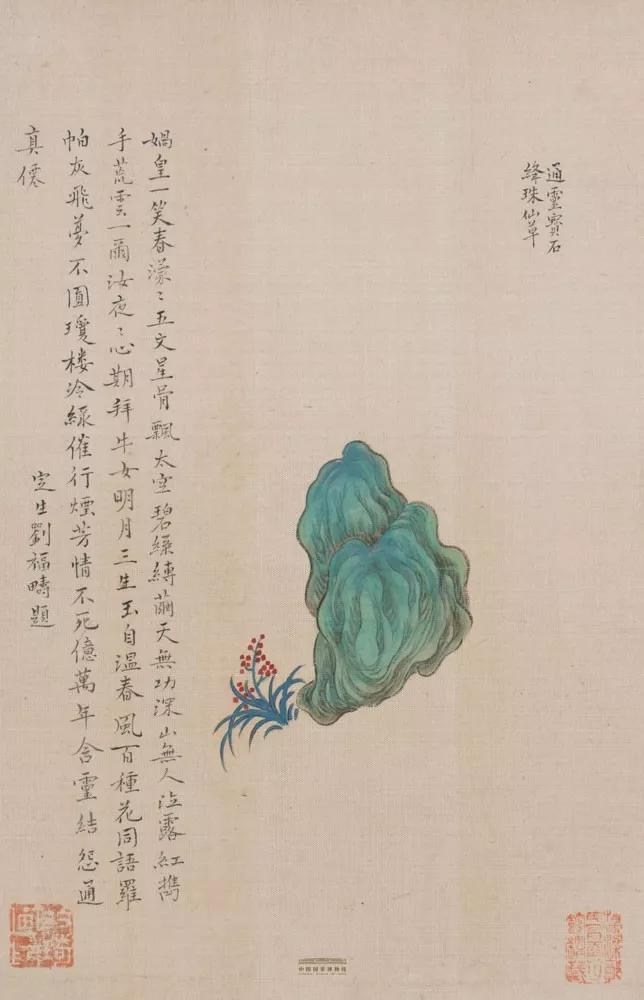 通靈寶石
絳珠仙草
媧皇一笑春濛〻五文星骨飄太空碧繰縛繭天無功深山無人泣露紅擕
手荒雲一爾汝夜〻心期拜牛女明月三生玉自温春風百種花同語羅
帕灰飛夢不圓瓊楼冷綠催行煙芳情不死億萬年含靈結怨通
真僊
定生劉福疇題
中国国家博物馆